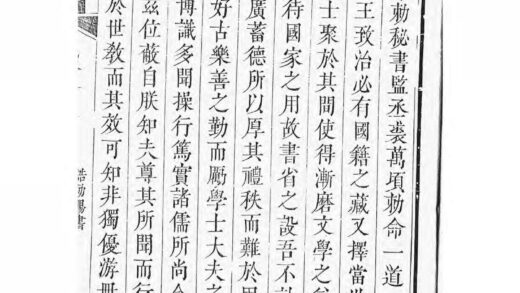 勅秘書監丞裘萬頃勅命一道
王致治必有國籍之藏又擇當
士聚於其間使得漸磨文學之
待國家之用故書省之設吾不
廣蓄德所以厚其禮秩而難於
好古樂善之勤而勵學士大夫之
博識多聞操行篤實諸儒所尚今
兹位蔽自朕知夫尊其所聞而行
於世敎而其效可知非獨優游
誥勅